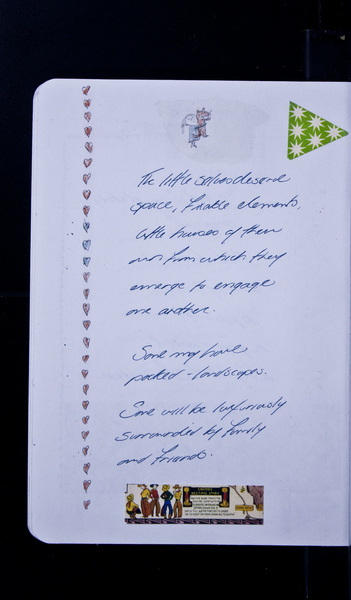 The little solos deserve
space, finable elements,
little houses of their
own from which they
emerge to engage
one another.
Some may have
packed-landscapes.
Some will be luxuriously
surrounded by family
and friends.